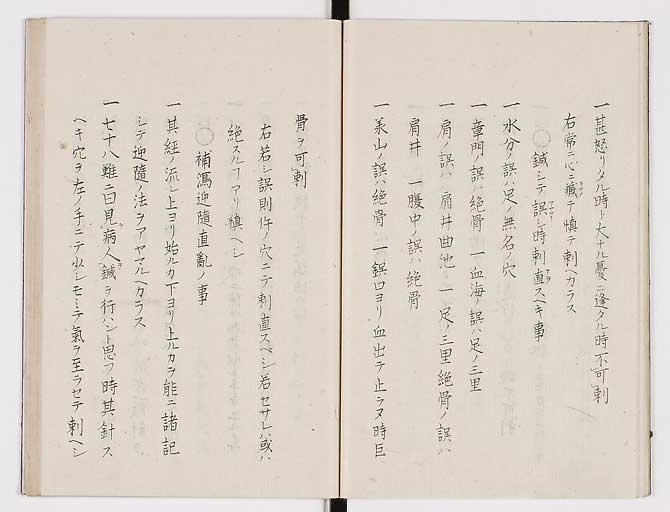 一甚怒リタル時ト大ナル憂ニ逢タル時不可刺
右常ニ心ニ蔵テ慎テ刺ヘカラス
○鍼シテ誤シ時刺直スヘキ事
一水分ノ誤ハ足ノ無名ノ穴
一章門ノ誤ハ絶骨 一血海ノ誤ハ足ノ三里
一肩ノ誤ハ 肩井曲池 一足ノ三里絶骨ノ誤ハ
肩井 一腹中ノ誤ハ絶骨
一承山ノ誤ハ絶骨 一鍼口ヨリ血出テ止ラヌ時巨
骨ヲ可刺
右若シ誤則件ノ穴ニテ刺直スベシ若セサレハ或ハ
絶スルアリ慎ヘシ
○補瀉迎隨直亂ノ事
一其経ノ流レ上ヨリ始ルカ下ヨリ上ルカヲ能ニ諸記
シテ迎隨ノ法ヲアヤマルヘカラス
一七十八難ニ曰見病人鍼ヲ行ハント思フ時其針ス
ヘキ穴ヲ左ノ手ニテ少シモミテ氣ヲ至ラセテ刺ヘシ